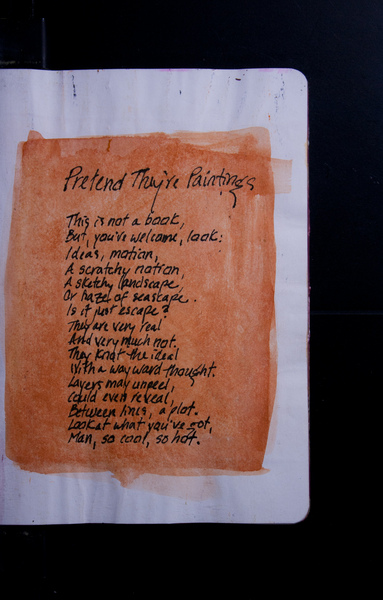 Pretend They're Paintings
This is not a book,
But, you're welcome, look:
Ideas, motion,
A scratchy notion,
A sketchy landscape,
Or haze of seascape.
Is it just escape?
They are very real
And very much not.
They knot the ideal
With a wayward thought.
Layers may unpeel,
Could even reveal,
Between lines, a plot.
Look at what you've got,
Man, so cool, so hot.